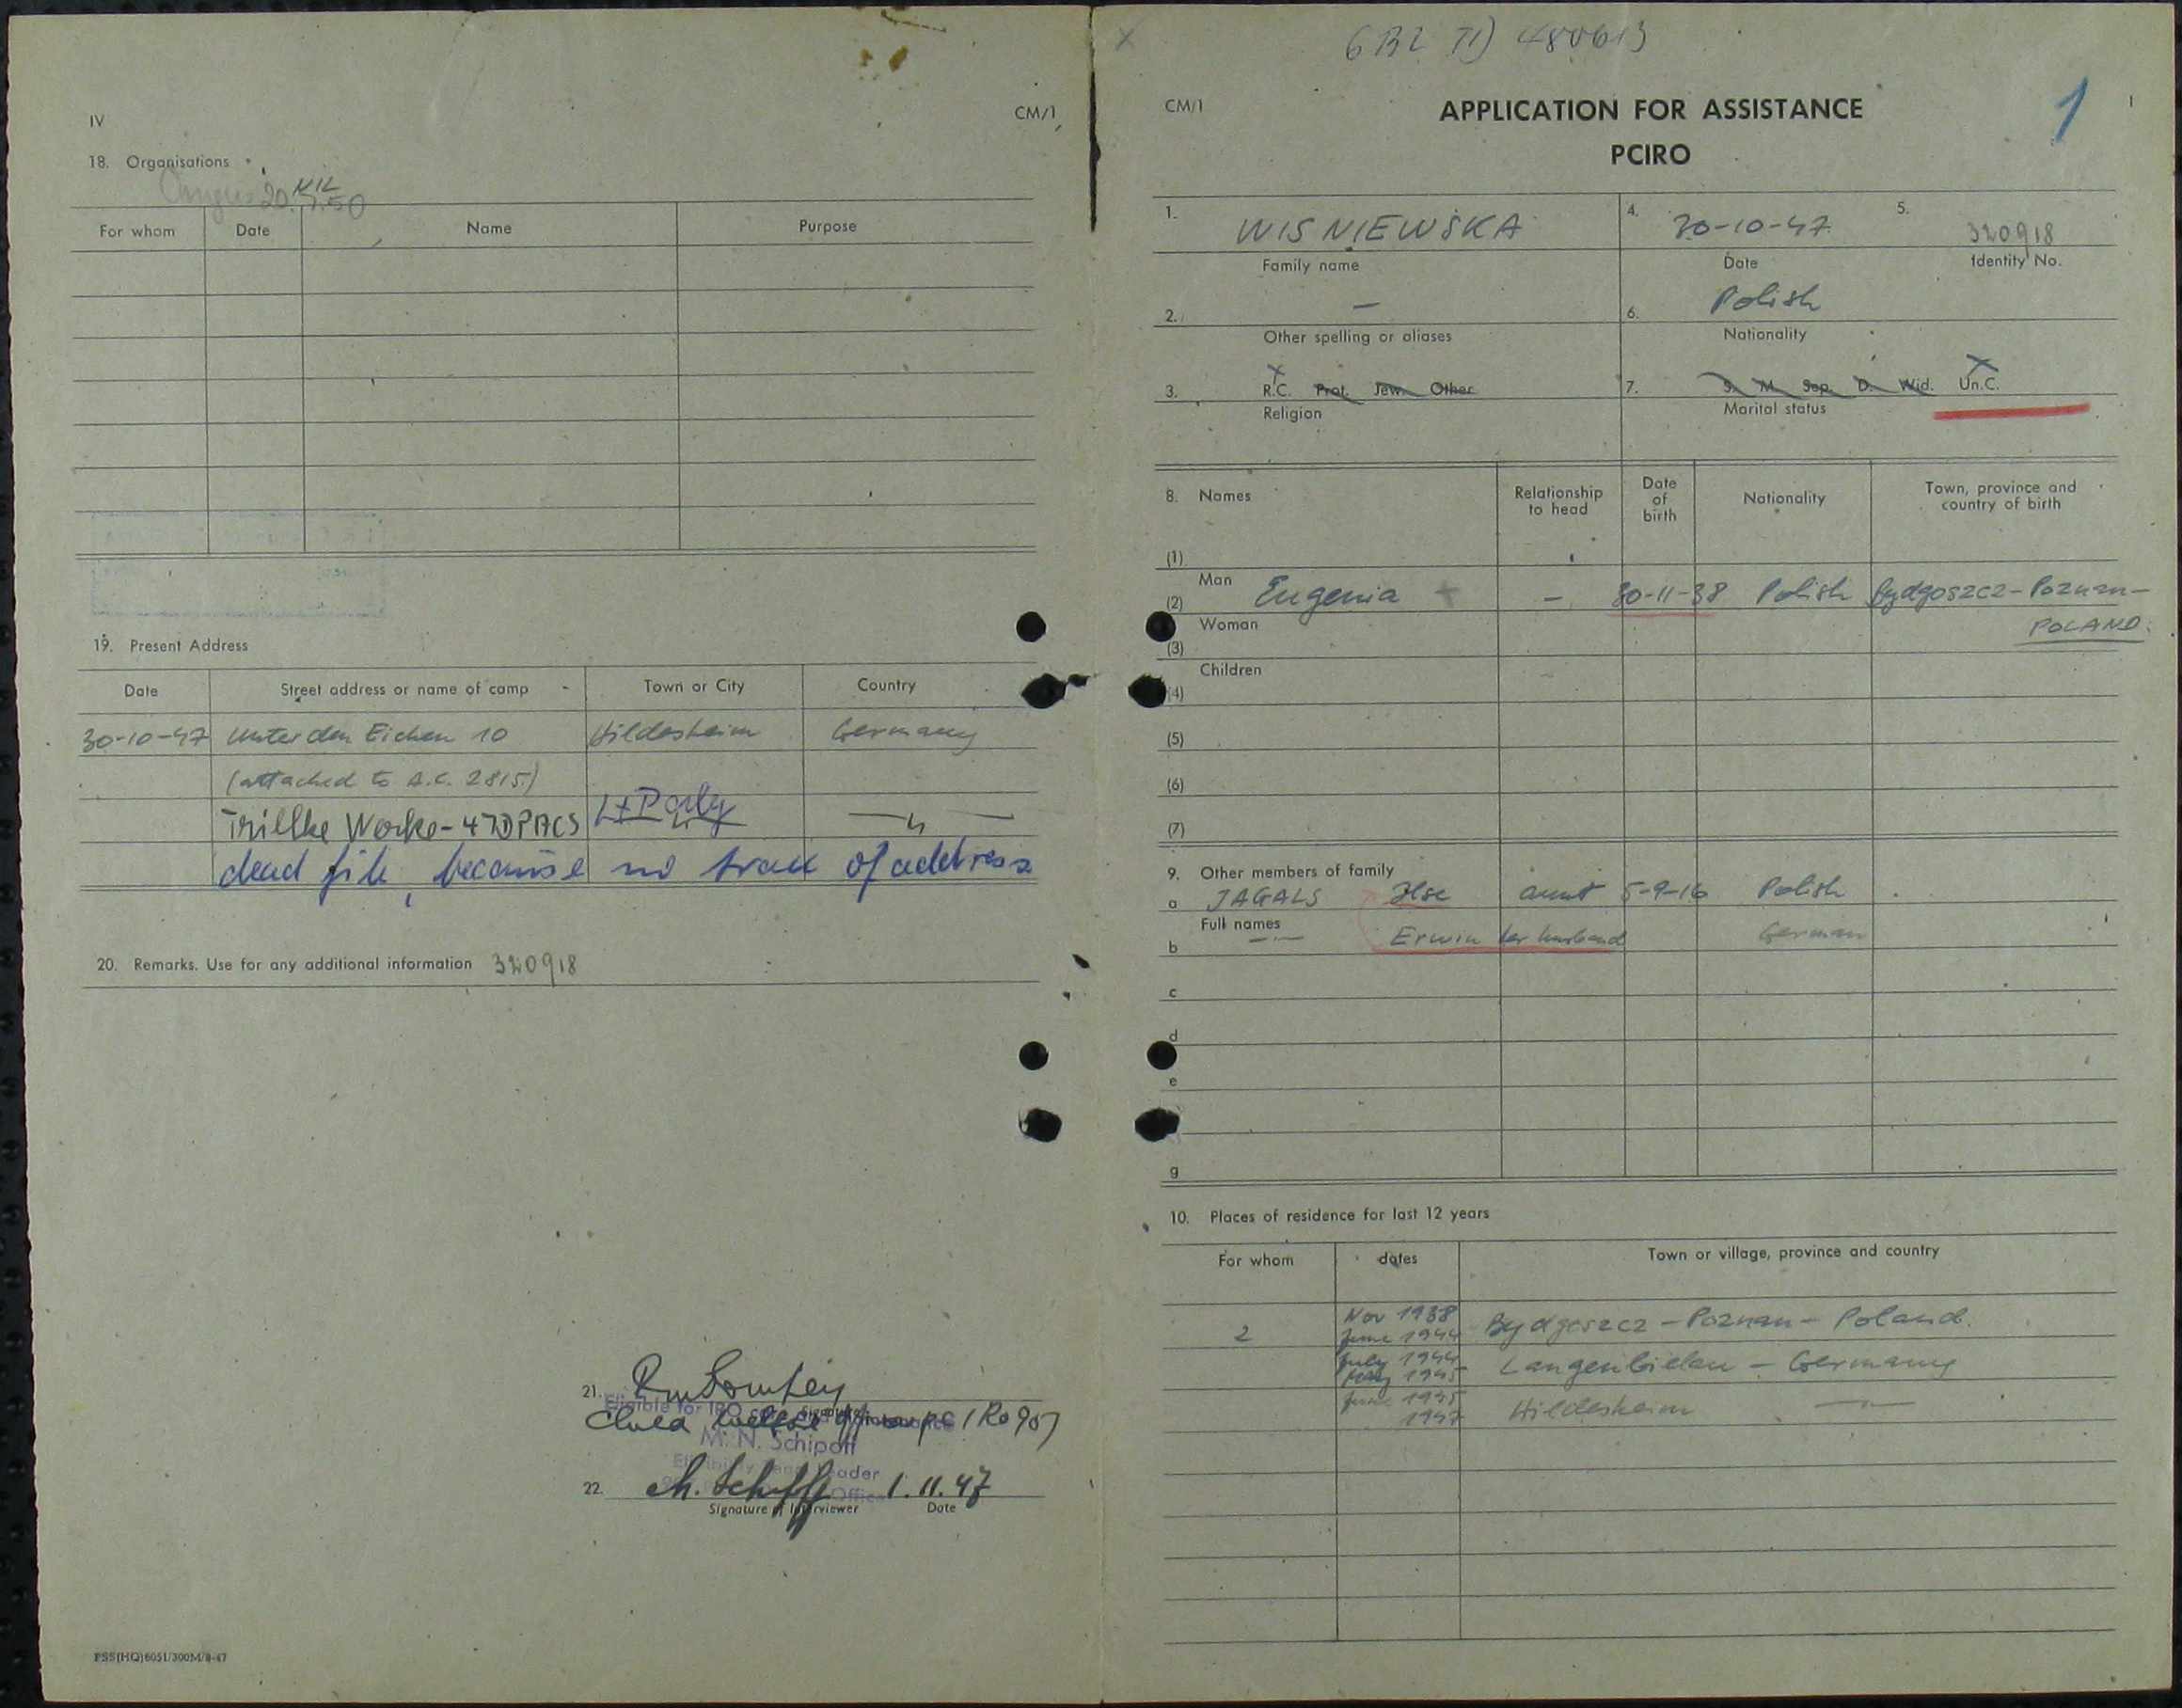 IV
CM/1
18. Organisations
NIL
20.7.50
For whom Date Name Purpose
19. Present Address
Date Street address or name of camp Town or City Country
30-10-47 Unter den Eichen 10 Hildesheim Germany
(attached to A.C. 2815)
dead file, because no trace of address
20. Remarks. Use for any additional information 320918
21.
Signature
Eligible for IRO
M. N. Schipoff
22. 1.11.47
Signature of Interviewer Date
PSS(HQ)6051/300M/8-47
480613
CM/1
APPLICATION FOR ASSISTANCE
PCIRO
1
I
1. WISNIEWSKA
Family name
4. 30-10-47
Date
5. 320918
Identity No.
2. —
Other spelling or aliases
6. Polish
Nationality
3. R.C. Prot. Jew. Other
Religion
7. S. M. Sep. D. Wid. Un.C.
Marital status
8. Names Relationship to head Date of birth Nationality Town, province and country of birth
(1)
Man
(2) Eugenia — 30-11-38 Polish Bydgoszcz - Poznan -
POLAND.
Woman
(3)
Children
(4)
(5)
(6)
(7)
9. Other members of family
a JAGALS Ilse aunt 5-9-16 Polish
Full names
b Erwin her husband German
c
d
e
g
10. Places of residence for last 12 years
For whom dates Town or village, province and country
2 Nov 1938 June 1944 Bydgoszcz - Poznan - Poland.
July 1944 May 1945 Langenbielau - Germany
June 1945 1947 Hildesheim —"—